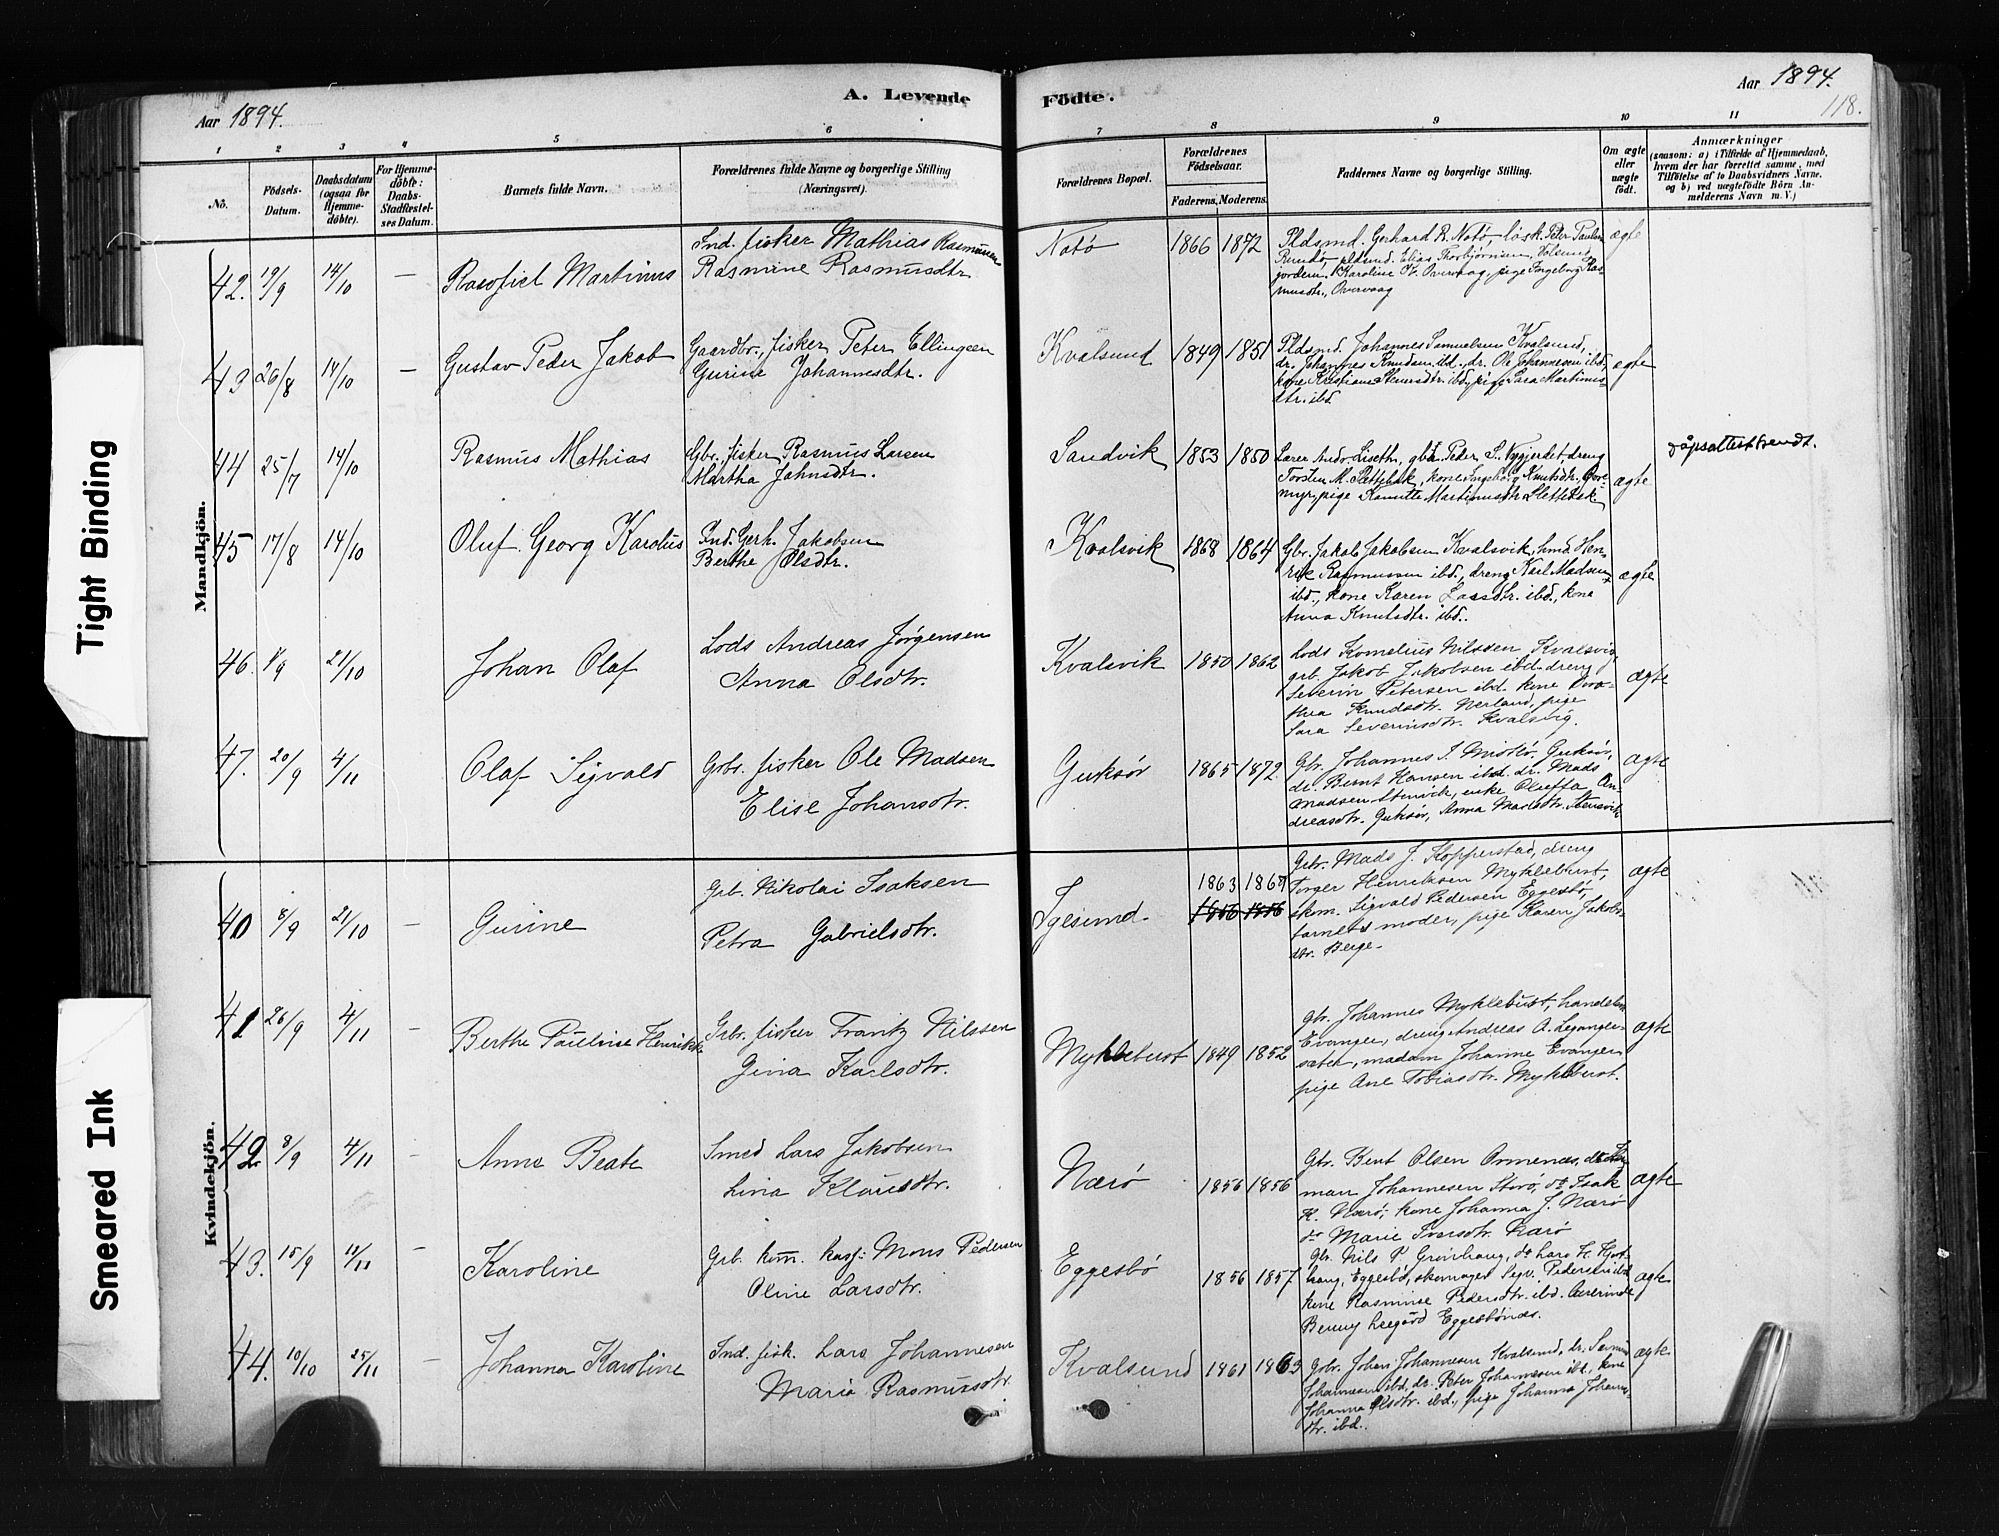 Aar 1894.
A. Levende
Födte.
Aar 1894.
118.
1 2 3 4 5 6 7 8 9 10 11
No.
Födsels-
Datum.
Daabsdatum
(ogsaa for
Hjemme-
döbte).
For Hjemme-
döbte:
Daabs-
Stadfæstel-
ses Datum.
Barnets fulde Navn.
Forældrenes fulde Navne og borgerlige Stilling
(Næringsvei).
Forældrenes Bopæl.
Forældrenes
Födselsaar.
Faderens. Moderens.
Faddernes Navne og borgerlige Stilling.
Om ægte
eller
uægte
födt.
Anmærkninger
(saasom: a) i Tilfælde af Hjemmedaab,
hvem der har forrettet samme, med
Tilföielse af to Daabsvidners Navne,
og b) ved uægtefödte Börn An-
melderens Navn m. V.)
Mandkjön.
42. 19/9 14/10 — Martinus
Ind. fisker Mathias Rasmussen
Rasmine Rasmusdtr.
Notö 1866 1872
Pldsmd. Gerhard R. Notö, løsk. Peter Paulsen
Rundö, pldsmd. Elias Thorbjörnsen,
Karoline Overvaag, pige Ingeborg Ras-
musdtr., Overvaag
ægte
43 26/8 14/10 — Gustav Peder Jakob
Gaardbr., fisker Peter Ellingsen
Gurine Johannesdtr.
Kvalsund 1849 1851
Pldsmd. Johannes Samuelsen Kvalsund,
dr. Johannes Knudsen ibd., dr. Ole Johannesen ibd.,
kone Kristiane Steursdtr. ibd., pige Sara Martinus-
dtr. ibd
ægte
44 25/7 14/10 Rasmus Mathias
Gbr. fisker Rasmus Larsen
Martha Jahnsdtr.
Sandvik 1853 1850
Lærer Andr. Liseth, gbr. Peder S. Nygjerdet dreng
Torsten M. Slettebak, kone Ingeborg Knutsdtr.
myr, pige Martinusdtr. Slettebak
ægte
dåpsattest sendt.
45 17/8 14/10 Oluf Georg Karolus
Ind. Gerh. Jakobsen
Berthe Olsdtr.
Kvalsvik 1868 1864
Gbr. Jakob Jakobsen Kvalsvik, hmd. Hen-
rik Rasmussen ibd., dreng Karl Madsen
ibd., kone Karen Lassdtr. ibd., kone
Anna Knutsdtr. ibd..
ægte
46. 1/9 21/10 Johan Olaf
Lods Andreas Jørgensen
Anna Olsdtr.
Kvalsvik 1850 1862
Lods Kornelius Nilssen Kvalsvig,
grb. Jakob Jakobsen ibd. dreng
Severin Petersen ibd. kone Doro-
thea Knudsdtr. Nerland, pige
Sara Severinsdtr. Kvalsvig.
ægte
47. 20/9 4/11 Olaf Sigvald
Grbr. fisker Ole Madsen
Elise Johansdtr.
Guksør 1865 1872.
Gbr. Johannes J. Guksør,
dr. Bernt Hansen ibd. dr. Mads
Madsen Stensvik, enke Oluffa An-
dreasdtr. Guksør, Anna Madsdtr. Stensvik
ægte
Kvindekjön.
40 8/9 21/10 — Gurine
Grb. Nikolai Isaksen
Petra Gabrielsdtr.
Igesund. 1863 1867
1856 1856
Grbr. Mads J. Kopperstad, dreng
Torger Henriksen Myklebust,
skom. Sigvald Pedersen Eggesbö,
barnets moder, pige Karen Jakobs-
dtr. Berge.
ægte
41 26/9 4/11 — Berthe Pauline Henrikke
Grbr. fisker Frantz Nilssen
Gina Karlsdtr.
Myklebust 1849 1852
Gbr. Johannes Myklebust, handelsm.
Evangen, dreng Andreas A. Leganger-
sæter, madam Johanne Evangen
pige Ane Tobiasdtr. Myklebust.
ægte
42 8/9 4/11 — Anne Beate
Smed Lars Jakobsen
Lina Klausdtr.
Nærö 1856 1856
Gbr. Bent Olsen Ormenæs, do Her-
man Johannesen Störö, do Isak
K. Nærö, kone Johanna J. Nærö
do Marie Iversdtr. Nærö
ægte
43. 15/9 11/11 — Karoline
Grb. kom. kass: Mons Pedersen
Oline Larsdtr.
Eggesbö 1856 1857
Gbr. Nils P. Grönhaug, do Lars H. Hjort-
haug, Eggesbö, skomager Sigv. Pedersen ibd.
kone Rasmine Pedersdtr. ibd. lærerinde
Benny Leegård Eggesbönæs.
ægte
44. 10/10 25/11 — Johanna Karoline
Ind. fisk. Lars Johannesen
Marie Rasmusdtr.
Kvalsund 1861 1863
Gbr. Johan Johannesen Kvalsund, dr. Severin
Johannesen ibd., dr. Peter Johannesen ibd., kone
Johanna Olsdtr. ibd., pige Johanna Johans-
dtr. ibd.
ægte
Tight Binding
Smeared Ink